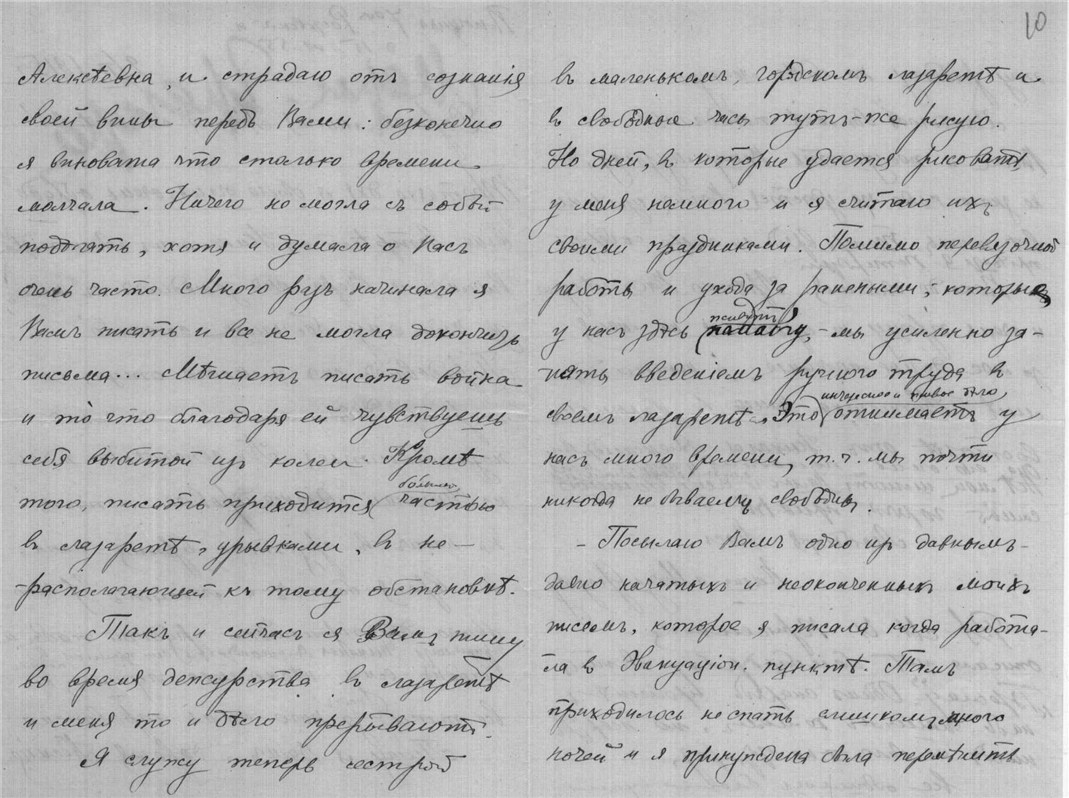 Алексѣевна, и страдаю отъ сознанія
своей вины передъ Вами: безконечно
я виновата что столько времени
молчала. Ничего не могла съ собой
подѣлать, хотя и думала о Васъ
очень часто. Много разъ начинала я
Вамъ писать и все не могла докончить
письма... Мѣшаетъ писать война
и то что благодаря ей чувствуешь
себя выбитой изъ колеи. Кромѣ
того, писать приходится большею частью
въ лазаретѣ, урывками, въ не-
располагающей къ тому обстановкѣ.
Такъ и сейчасъ я Вамъ пишу
во время дежурства въ лазаретѣ
и меня то и дѣло прерываютъ.
Я служу теперь сестрой
10
въ маленькомъ, городскомъ лазаретѣ и
въ свободные часы тутъ-же рисую.
Но дней, въ которые удается рисовать,
у меня немного и я считаю ихъ
своими праздниками. Помимо перевязочной
работы и ухода за ранеными, которые
у насъ здѣсь мы усиленно за-
няты введеніемъ ручного труда въ
своемъ лазаретѣ. Это интересное и живое дѣло отнимаетъ у
насъ много времени, т. ч. мы почти
никогда не бываемъ свободны.
- Посылаю Вамъ одно изъ давнымъ-
давно начатыхъ и неоконченныхъ моихъ
писемъ, которое я писала когда работа-
ла въ Эвакуаціон. пунктѣ. Тамъ
приходилось не спать слишкомъ много
ночей и я принуждена была перемѣнить